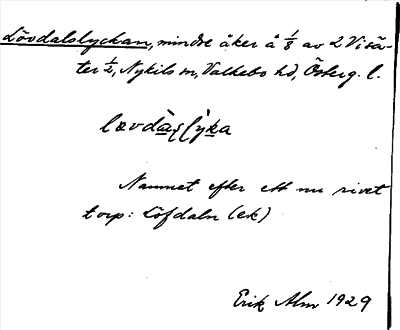 Lövdalslyckan, mindre åker å 1/8 av 2 Visä-
ter 1/2, Nykils sn, Valkebo hd, Österg. l.
Namnet efter ett nu rivet
torp: Löfdaln (ek)
Erik Alm 1929